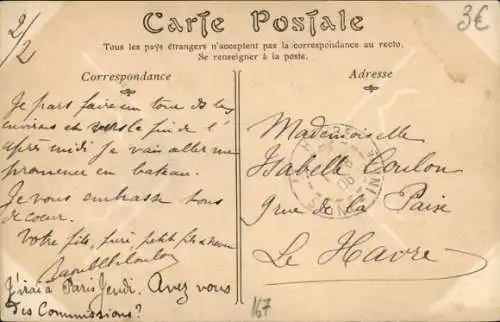 2/2
Carte Postale
3€
Tous les pays étrangers n'acceptent pas la correspondance au recto.
Se renseigner à la poste.
Correspondance
Je pars faire un tour de les
environs et vers la fin de l'
après midi je vais aller me
promener en bateau.
Je vous embrasse tous
de coeur.
Votre fils, frère, petit fils &
J'irai à Paris Jeudi. Avez vous
des Commissions?
Adresse
Mademoiselle
Isabelle Coulon
9 rue de la Paix
Le Havre
167